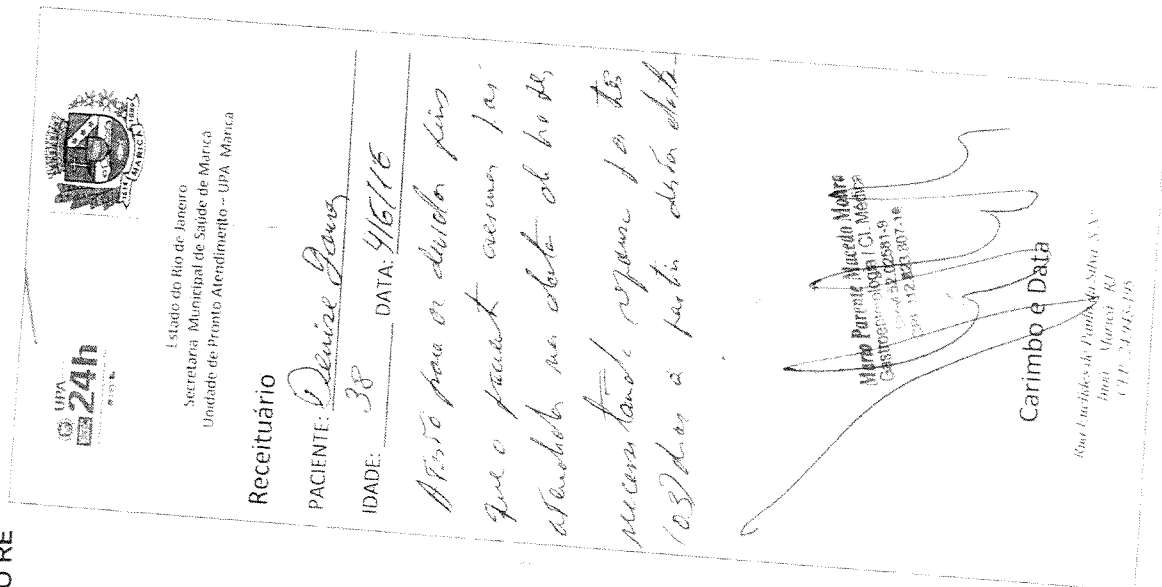 O RE
UPA
24h
MARICÁ
Estado do Rio de Janeiro
Secretaria Municipal de Saúde de Maricá
Unidade de Pronto Atendimento – UPA Maricá
Receituário
PACIENTE: Denise
IDADE: 38 DATA: 4/6/16
Atesto para os devidos fins
que o paciente acima foi
atendido na data de hoje,
necessitando repouso por três
(03) dias a partir desta data
Mario Parente Macedo
Gastroenterologia / Cl. Médica
52.02581-9
Carimbo e Data
Inoã Maricá RJ